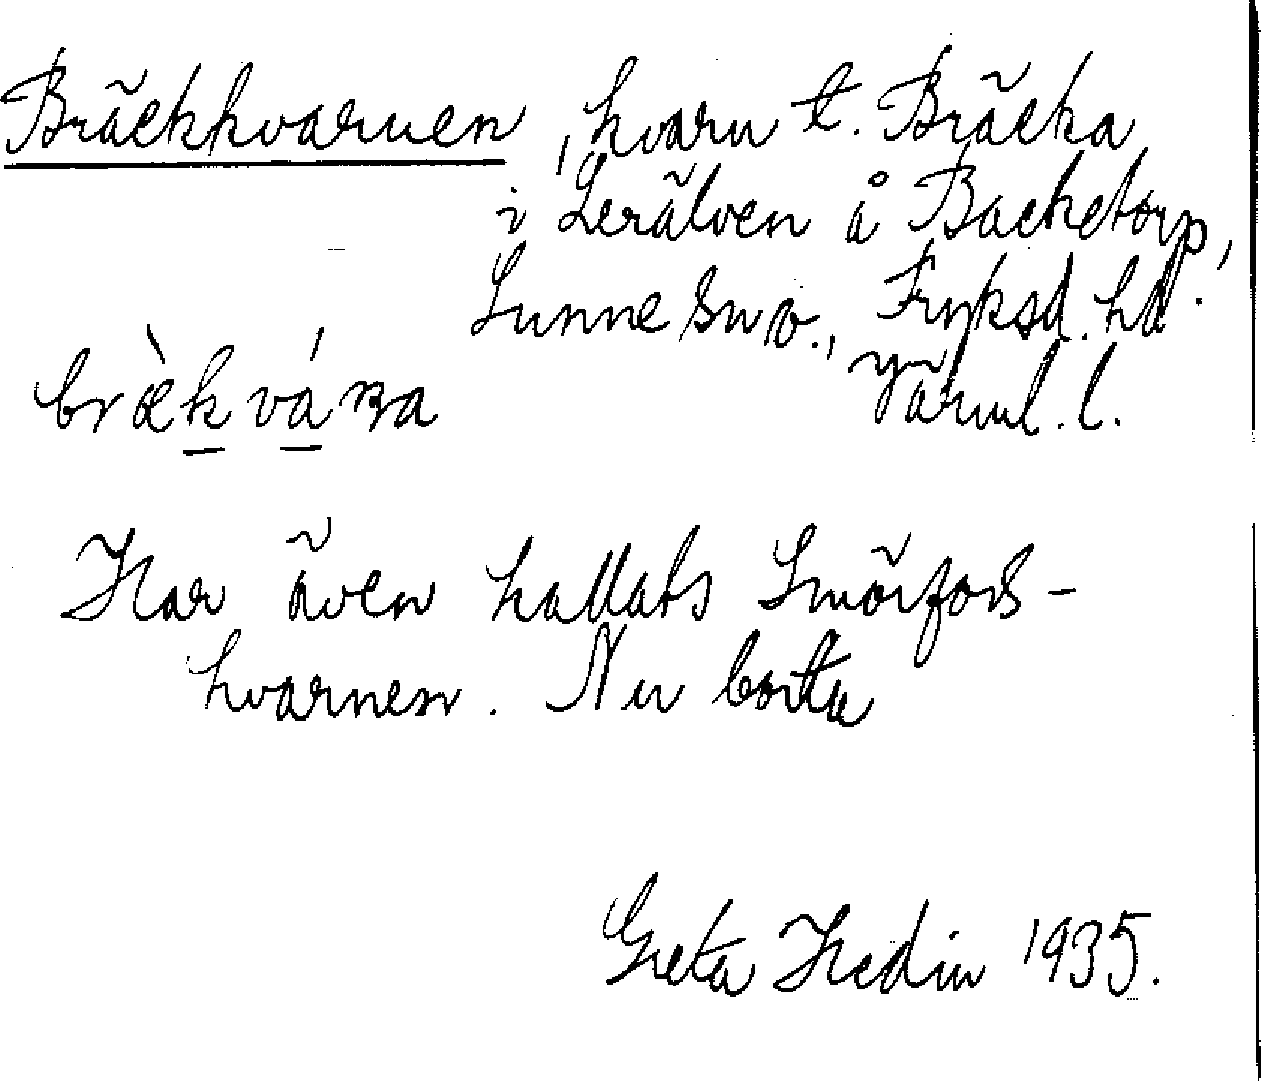 Bräckkvarnen, kvarn t. Bräcka
i Lerälven å Backetorp,
Sunne sn o., Fryksd. hd.
Värml. l.
bræ̀kvána
Har även kallats Smörfors-
kvarnen. Nu borta
Greta Hedin 1935.